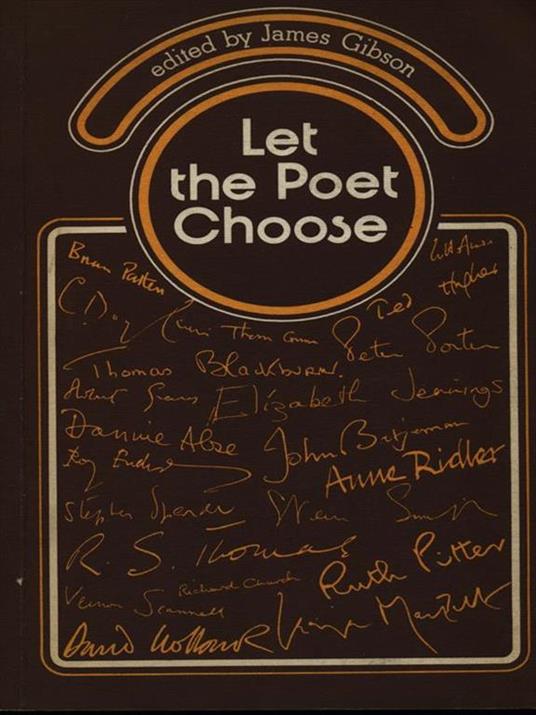 edited by James Gibson
Let
the Poet
Choose
Brian Patten
Ted Hughes
Thom Gunn
Peter Porter
Thomas Blackburn.
Elizabeth Jennings
Dannie Abse
John Betjeman
Roy Fuller
Anne Ridler
Stephen Spender
R. S. Thomas
Richard Church
Ruth Pitter
Vernon Scannell
David Holbrook